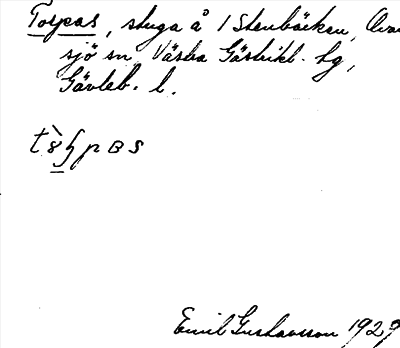 Torpas, stuga å 1 Stenbäcken, Ova
sjö sn, Västra Gästrikl. tg,
Gävleb. l.
Emil Gustavsson 1929